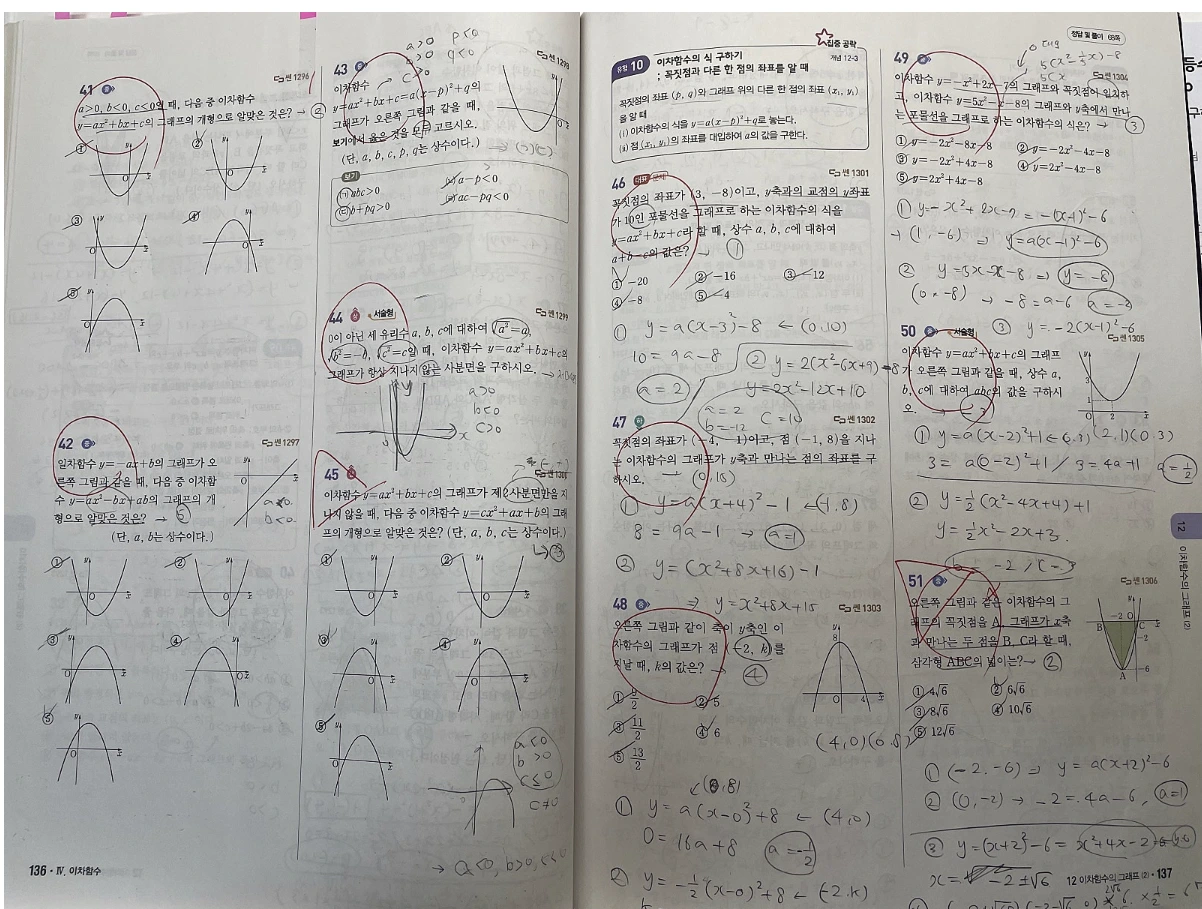 41
쎈 1296
a>0, b<0, c<0일 때, 다음 중 이차함수
y=ax²+bx+c의 그래프의 개형으로 알맞은 것은? → ②
① ②
③ ④
⑤
42
쎈 1297
일차함수 y=-ax+b의 그래프가 오
른쪽 그림과 같을 때, 다음 중 이차함
수 y=ax²-bx+ab의 그래프의 개
형으로 알맞은 것은? → ⑤
(단, a, b는 상수이다.)
b<0
① ②
③ ④
⑤
136 · Ⅳ. 이차함수
a>0 p<0
q<0
c>0
43
쎈 1298
이차함수
y=ax²+bx+c=a(x-p)²+q의
그래프가 오른쪽 그림과 같을 때,
보기에서 옳은 것을 모두 고르시오.
(단, a, b, c, p, q는 상수이다.)
보기
(ㄱ) abc>0 (ㄴ) a-p<0
(ㄷ) b+pq>0 (ㄹ) ac-pq<0
44 서술형
쎈 1299
0이 아닌 세 유리수 a, b, c에 대하여 √a²=a,
√c²=c일 때, 이차함수 y=ax²+bx+c의
그래프가 항상 지나지 않는 사분면을 구하시오.
a>0
b<0
c>0
45
이차함수 y=ax²+bx+c의 그래프가 제2사분면만을 지
나지 않을 때, 다음 중 이차함수 y=cx²+ax+b의 그래
프의 개형으로 알맞은 것은? (단, a, b, c는 상수이다.)
→ ③
① ②
③ ④
⑤
a<0
b>0
c≤0
c≠0
집중 공략
유형 10 이차함수의 식 구하기
; 꼭짓점과 다른 한 점의 좌표를 알 때
개념 12-3
꼭짓점의 좌표 (p, q)와 그래프 위의 다른 한 점의 좌표 (x₁, y₁)
을 알 때
(ⅰ) 이차함수의 식을 y=a(x-p)²+q로 놓는다.
(ⅱ) 점 (x₁, y₁)의 좌표를 대입하여 a의 값을 구한다.
46 대표 문제
쎈 1301
꼭짓점의 좌표가 (3, -8)이고, y축과의 교점의 y좌표
가 10인 포물선을 그래프로 하는 이차함수의 식을
y=ax²+bx+c라 할 때, 상수 a, b, c에 대하여
a+b-c의 값은? → ①
① -20 ② -16 ③ -12
④ -8 ⑤ -4
① y=a(x-3)²-8 ← (0,10)
10=9a-8 ② y=2(x²-6x+9)-8
a=2 y=2x²-12x+10
a=2
b=-12 c=10
47
쎈 1302
꼭짓점의 좌표가 (-4, -1)이고, 점 (-1, 8)을 지나
는 이차함수의 그래프가 y축과 만나는 점의 좌표를 구
하시오. (0,15)
① y=a(x+4)²-1 ← (-1,8)
8=9a-1 → a=1
② y=(x²+8x+16)-1
⇒ y=x²+8x+15
48
쎈 1303
오른쪽 그림과 같이 축이 y축인 이
차함수의 그래프가 점 (-2, k)를
지날 때, k의 값은? → ④
① 9/2 ② 5
③ 11/2 ④ 6
⑤ 13/2
(4,0)(0,8)
(0,8)
① y=a(x-0)²+8 ← (4,0)
0=16a+8 a=-1/2
② y=-1/2(x-0)²+8 ← (-2,k)
정답 및 풀이 68쪽
49
쎈 1304
이차함수 y=-x²+2x-7의 그래프와 꼭짓점이 일치하
고, 이차함수 y=5x²-x-8의 그래프와 y축에서 만나
는 포물선을 그래프로 하는 이차함수의 식은? → ③
① y=-2x²-8x-8 ② y=-2x²-4x-8
③ y=-2x²+4x-8 ④ y=2x²-4x-8
⑤ y=2x²+4x-8
① y=-x²+2x-7=-(x-1)²-6
→ (1,-6) ⇒ y=a(x-1)²-6
⇒ y=-8
→ -8=a-6 a=-2
③ y=-2(x-1)²-6
50 서술형
쎈 1305
이차함수 y=ax²+bx+c의 그래프
가 오른쪽 그림과 같을 때, 상수 a,
b, c에 대하여 abc의 값을 구하시
오.
① y=a(x-2)²+1 (2,1)(0,3)
3=a(0-2)²+1 / 3=4a+1 a=1/2
② y=1/2(x²-4x+4)+1
y=1/2x²-2x+3
51
쎈 1306
오른쪽 그림과 같은 이차함수의 그
래프의 꼭짓점을 A, 그래프가 x축
과 만나는 두 점을 B, C라 할 때,
삼각형 ABC의 넓이는? → ②
① 4√6 ② 6√6
③ 8√6 ④ 10√6
⑤ 12√6
① (-2,-6) ⇒ y=a(x+2)²-6
② (0,-2) → -2=4a-6, a=1
③ y=(x+2)²-6=x²+4x-2
x=-2±√6
12 이차함수의 그래프 (2) · 137
12
이차함수의 그래프 (2)